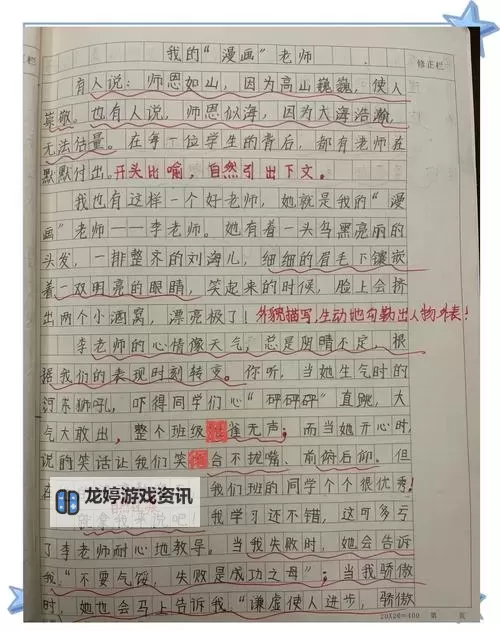 我的“漫画”老师
修正栏
有人说：师恩如山，因为高山巍巍，使人
崇敬。也有人说，师恩似海，因为大海浩瀚，
无法估量。在每一位学生的背后，都有老师在
默默付出。开头比喻，自然引出下文。
我也有这样一个好老师，她就是我的“漫
画”老师——李老师。她有着一头乌黑亮丽的
头发，一排整齐的刘海儿，细细的眉毛下镶嵌
着一双明亮的眼睛，笑起来的时候，脸上会挤
出两个小酒窝，漂亮极了！外貌描写，生动地勾勒出人物外表！
李老师的心情像天气，总是阴晴不定，根
据我们的表现时刻转变。你听，当她生气时的
河东狮吼，吓得同学们心“砰砰砰”直跳，大
气大敢出，整个班级雀无声；而当她开心时，
说的笑话让我们笑合不拢嘴、前俯后仰。但
在
我们班的同学个个很优秀！
龙婷游戏资讯
就拿我来说吧！
我学习还不错，这可多亏
了李老师耐心地教导。当我失败时，她会告诉
我“不要气馁，失败是成功之母”；当我骄傲
时，她也会马上告诉我“谦虚使人进步，骄傲
20X20=400 第 页